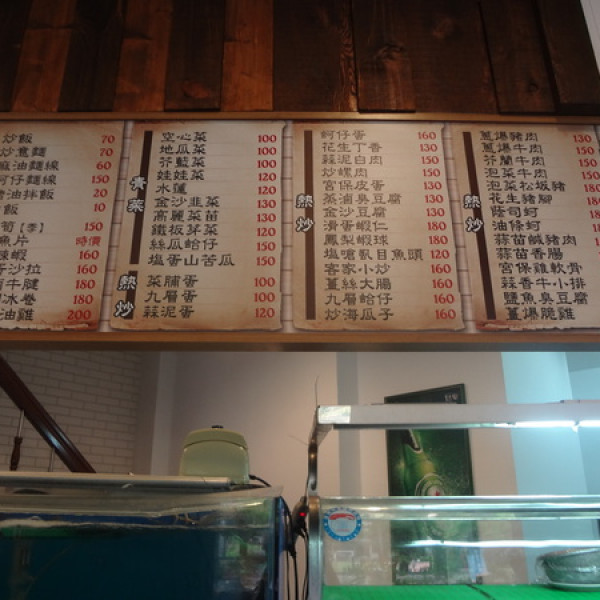 炒飯 70
炒意麵 70
麻油麵線 60
蚵仔麵線 150
油拌飯 20
飯 10
筍【季】
魚片 時價
蝦 160
沙拉 160
牛腱 180
冰卷 180
油雞 200
青菜
空心菜 100
地瓜菜 100
芥藍菜 100
娃娃菜 120
水蓮 120
金沙韭菜 130
高麗菜苗 130
鐵板芽菜 120
絲瓜蛤仔 150
塩蛋山苦瓜 150
熱炒
菜脯蛋 100
九層蛋 100
蒜泥蛋 120
熱炒
蚵仔蛋 160
花生丁香 130
蒜泥白肉 150
炒螺肉 150
宮保皮蛋 130
蒸滷臭豆腐 130
金沙豆腐 130
滑蛋蝦仁 180
鳳梨蝦球 180
塩嗆虱目魚頭 120
客家小炒 160
薑絲大腸 160
九層蛤仔 160
炒海瓜子 160
熱炒
蔥爆豬肉 130
蔥爆牛肉 150
芥蘭牛肉 150
泡菜牛肉 150
泡菜松坂豬
花生豬腳
隆司蚵
油條蚵
蒜苗鹹豬肉
蒜苗香腸
宮保雞軟骨
蒜香牛小排
鹽魚臭豆腐
薑爆脆雞